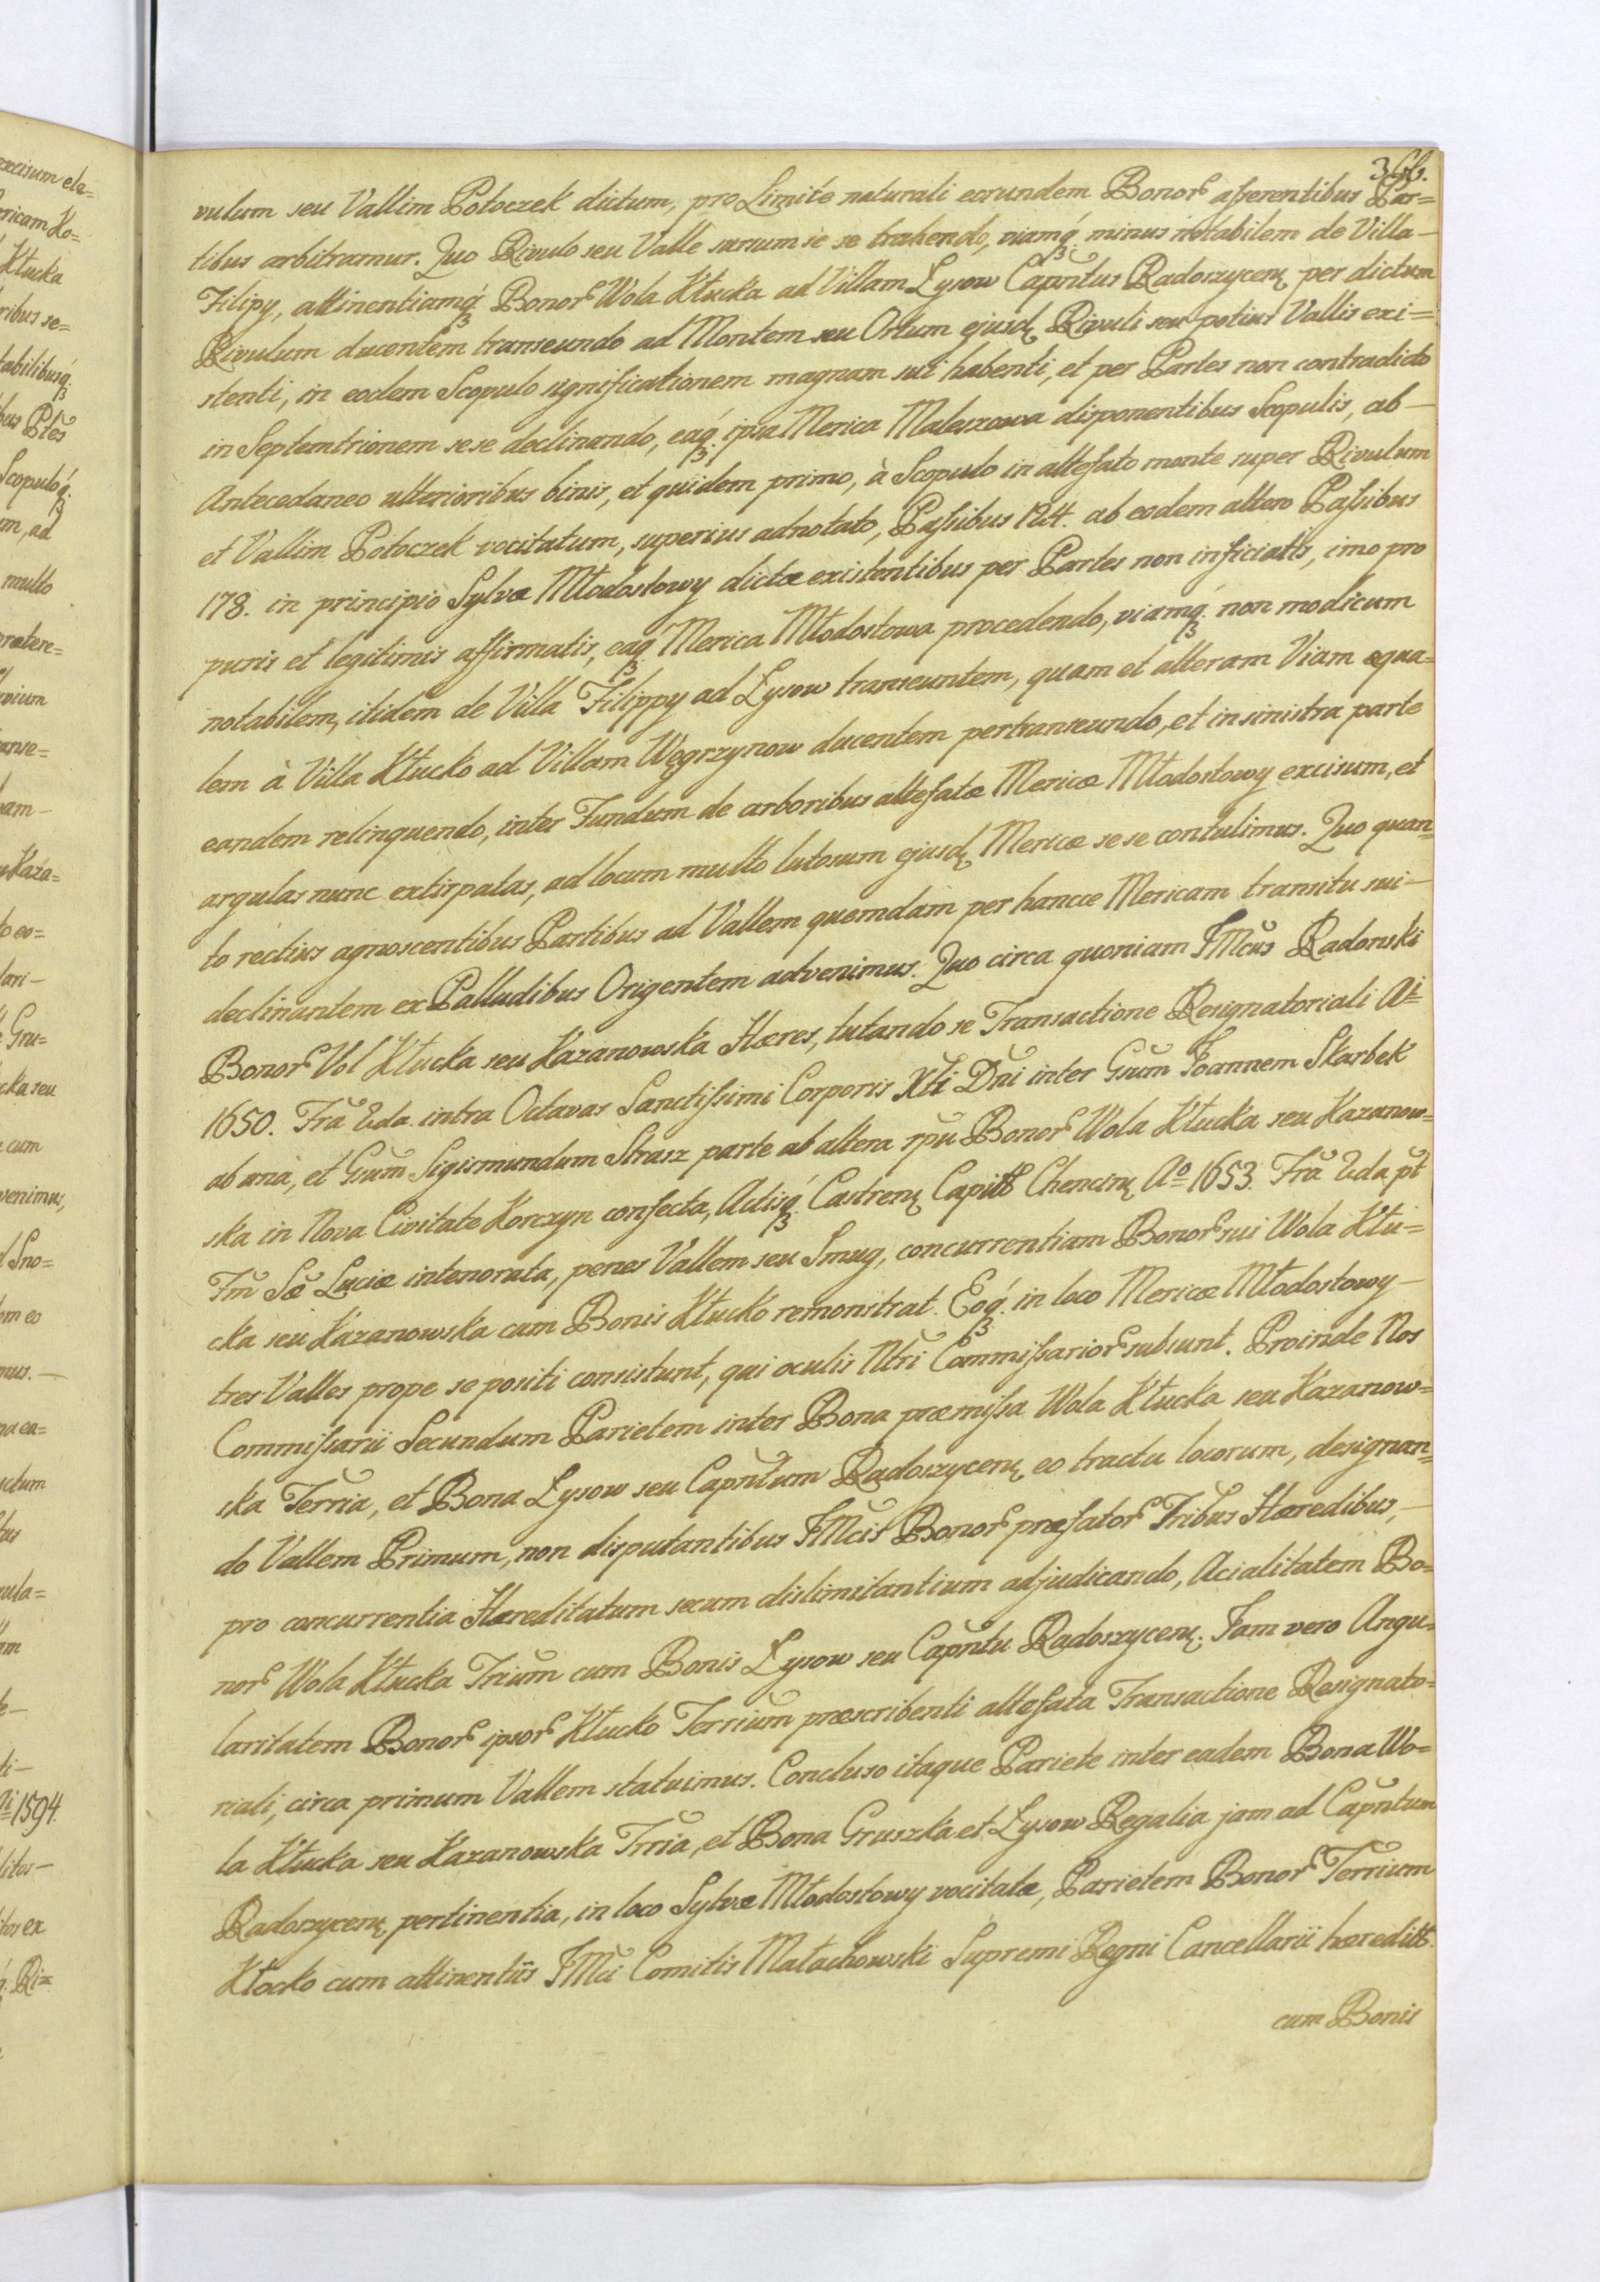 366.
vulum seu Vallim Potoczek dictum, pro Limite naturali eorundem Bonor asserentibus Par=
tibus arbitramur. Quo Rivulo seu Valle sursum se se trahendo, viamq3 minus notabilem de Villa —
Filipy, attinentiamq3 Bonor Wola Kłucka ad Villam Łysow Capntus Radoszycen per dictum
Rivulum ducentem transeundo ad Montem seu Ortum ejusd Rivuli seu potius Vallis exi=
stenti, in eodem Scopulo significationem magnam sui habenti, et per Partes non contradicto
in Septemtrionem sese declinando, eaq3 ipsa Merica Maleszowa disponentibus Scopulis, ab —
Antecedaneo ulterioribus binis, et quidem primo, à Scopulo in attefato monte super Rivulum
et Vallim Potoczek vocitatum, superius adnotato, Passibus 124. ab eodem altero Passibus
178. in principio Sylvæ Młodostowy dictæ existentibus per Partes non inficiatis, imo pro
puris et legitimis affirmatis, eaq3 Merica Młodostowa procedendo, viamq3 non modicum
notabilem, itidem de Villa Filippy ad Łysow transeuntem, quam et alteram Viam æqua=
lem à Villa Kłucko ad Villam Węgrzynow ducentem pertranseundo, et in sinistra parte
eandem relinquendo, inter Fundum de arboribus attefatæ Mericæ Młodostowy excisum, et
argulas nunc extirpatas, ad locum multo lutosum ejusd Mericæ se se contulimus. Quo quan=
to rectius agnoscentibus Partibus ad Vallem quemdam per hancce Mericam transitu sui —
declinantem ex Palludibus Origentem advenimus. Quo circa quoniam JMcus Radonski
Bonor Vol Kłucka seu Kazanowska Hæres, lutando se Transactione Resignatoriali Ai
1650. Fra 2da intra Octavas Sanctissimi Corporis Xti Dni inter Gsum Joannem Skarbek
ab una, et Gsum Sigismundum Strasz parte ab altera rpu Bonor Wola Kłucka seu Kazanow=
ska in Nova Civitate Korczyn confecta, Actisq3 Castren Capitt Chencin Ao 1653. Fra 2da pt
Fm Sæ Luciæ intenorata, penes Vallem seu Smug, concurrentiam Bonor sui Wola Kłu=
cka seu Kazanowska cum Bonis Kłucko remonstrat. Eoq3 in loco Mericæ Młodostowy —
tres Valles prope se positi consistunt, qui oculis Ntri Commissarior subsunt. Proinde Nos
Commissarii Secundum Parietem inter Bona præmissa Wola Kłucka seu Kazanow=
ska Terria, et Bona Łysow seu Capntum Radoszycen eo tractu locorum, designan=
do Vallem Primum, non disputantibus JMcis Bonor præfator Tribus Hæredibus, —
pro concurrentia Hæreditatum secum dislimitantium adjudicando, Acialitatem Bo=
nor Wola Kłucka Trium cum Bonis Łysow seu Capntu Radoszycen. Jam vero Angu=
laritatem Bonor ipsor Kłucko Terrium præscribenti attefata Transactione Resignato=
riali, circa primum Vallem statuimus. Concluso itaque Pariete inter eadem Bona Wo=
la Kłucka seu Kazanowska Trria, et Bona Gruszka et Łysow Regalia jam ad Capntum
Radoszycen pertinentia, in loco Sylvæ Młodostowy vocitatæ, Parietem Bonor Terrium
Kłocko cum attinentiis JMci Comitis Małachowski Supremi Regni Cancellarii hæreditt
cum Bonis